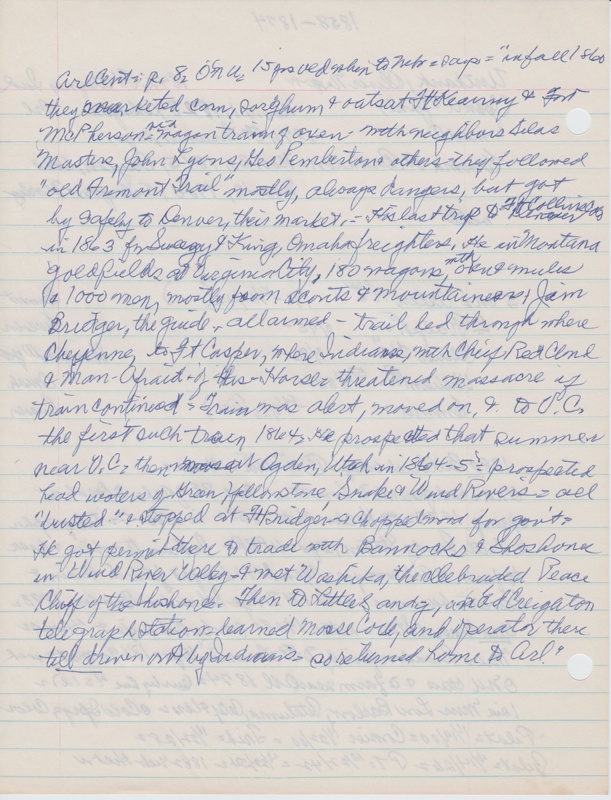 Arl Cent = p. 8, O'N
15 yrs old when to Nebr = says = "in fall 1860
they marketed corn, sorghum & oats at Ft Kearny & Fort
McPherson = via wagon train of oxen - with neighbors Silas
Masters, John Lyons, Geo Pemberton & others - they followed
"old Fremont Trail" mostly, always dangers, but got
by safely to Denver, their market. = His last trip to Ft Collins Colo
in 1863 for Sweezy & King, Omaha freighters. He in Montana
goldfields at Virginia City, 180 wagons, with oxen & mules
& 1000 men, mostly from scouts & mountaineers, Jim
Bridger, the guide, all armed - trail led through where
Cheyenne, to Ft Casper, where Indians, with Chief Red Cloud
& Man-Afraid-of-His-Horses threatened massacre if
train continued = Train was alert, moved on, & to V.C.
the first such train 1864, He prospected that summer
near V.C. = then Ogden, Utah in 1864-5 = prospected
head waters of Green, Yellowstone, Snake & Wind Rivers = all
"busted" & stopped at Ft Bridger & chopped wood for gov't =
He got permit there to trade with Bannocks & Shoshone
in Wind River Valley - & met Washika, the celebrated Peace
Chief of the Shoshone. Then to Little Sandy, and at Creighton
telegraph station learned Morse Code, and operator there
till driven out by Indians = so returned home to Arl."